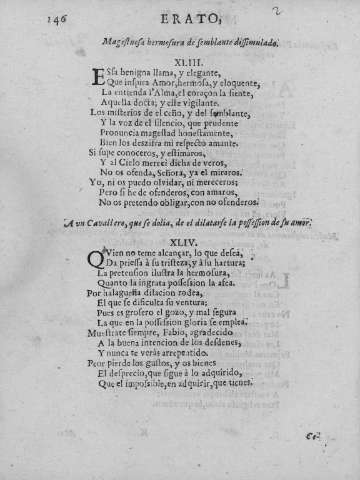 146
ERATO,
2
Magestuosa hermosura de semblante dissimulado.
XLIII.
ESsa benigna llama, y elegante,
Que inspira Amor, hermosa, y eloquente,
La entienda l'Alma, el coraçon la siente,
Aquella docta; y este vigilante.
Los misterios de el ceño, y del semblante,
Y la voz de el silencio, que prudente
Pronuncia magestad honestamente,
Bien los deszifra mi respecto amante.
Si supe conoceros, y estimaros,
Y al Cielo mereci dicha de veros,
No os ofenda, Señora, ya el miraros.
Yo, ni os puedo olvidar, ni mereceros;
Pero si he de ofenderos, con amaros,
No os pretendo obligar, con no ofenderos.
A un Cavallero, que se dolia, de el dilatarse la possession de su amor.
XLIV.
QVien no teme alcançar, lo que deseà,
Da priessa à su tristeza, y à su hartura;
La pretension ilustra la hermosura,
Quanto la ingrata possession la afea.
Por halagueña dilacion rodea,
El que se dificulta su ventura;
Pues es grosero el gozo, y mal segura
La que en la possession gloria se emplea.
Muestrate siempre, Fabio, agradecido
A la buena intencion de los desdenes,
Y nunca te veràs arrepentido.
Peor pierde los gustos, y os bienes
El desprecio, que sigue à lo adquirido,
Que el impossible, en adquirir, que tienes.